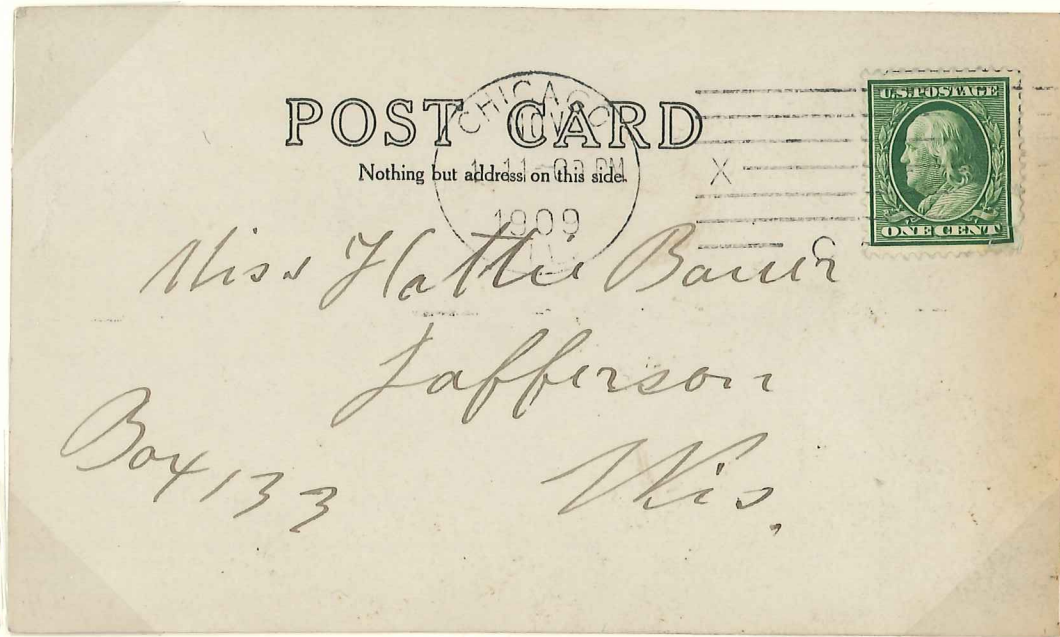 POST CARD
Nothing but address on this side.
CHICAGO
NOV
1909
X
C
U.S. POSTAGE
ONE CENT
Miss Hattie Bauer
Jafferson
Box 133
Wis.